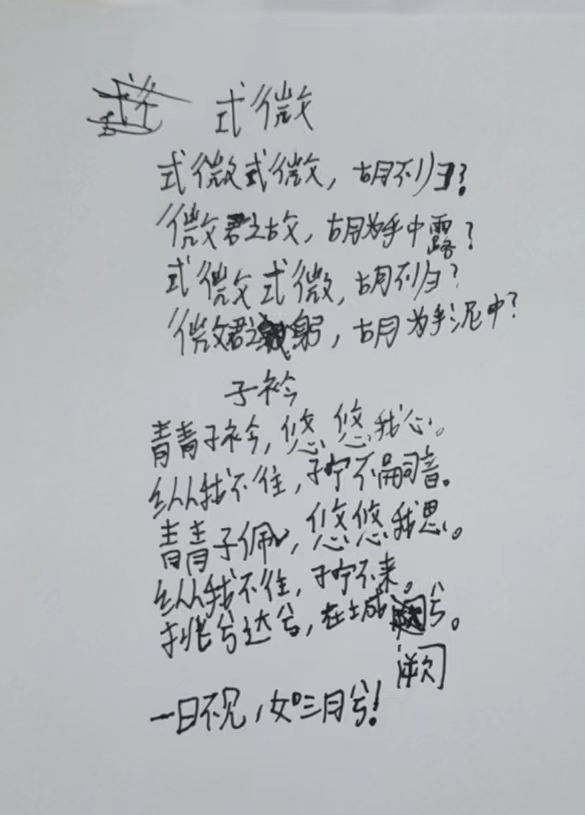 式微
式微式微，胡不归？
微君之故，胡为乎中露？
式微式微，胡不归？
微君之躬，胡为乎泥中？
子衿
青青子衿，悠悠我心。
纵我不往，子宁不嗣音。
青青子佩，悠悠我思。
纵我不往，子宁不来。
挑兮达兮，在城阙兮。
一日不见，如三月兮！